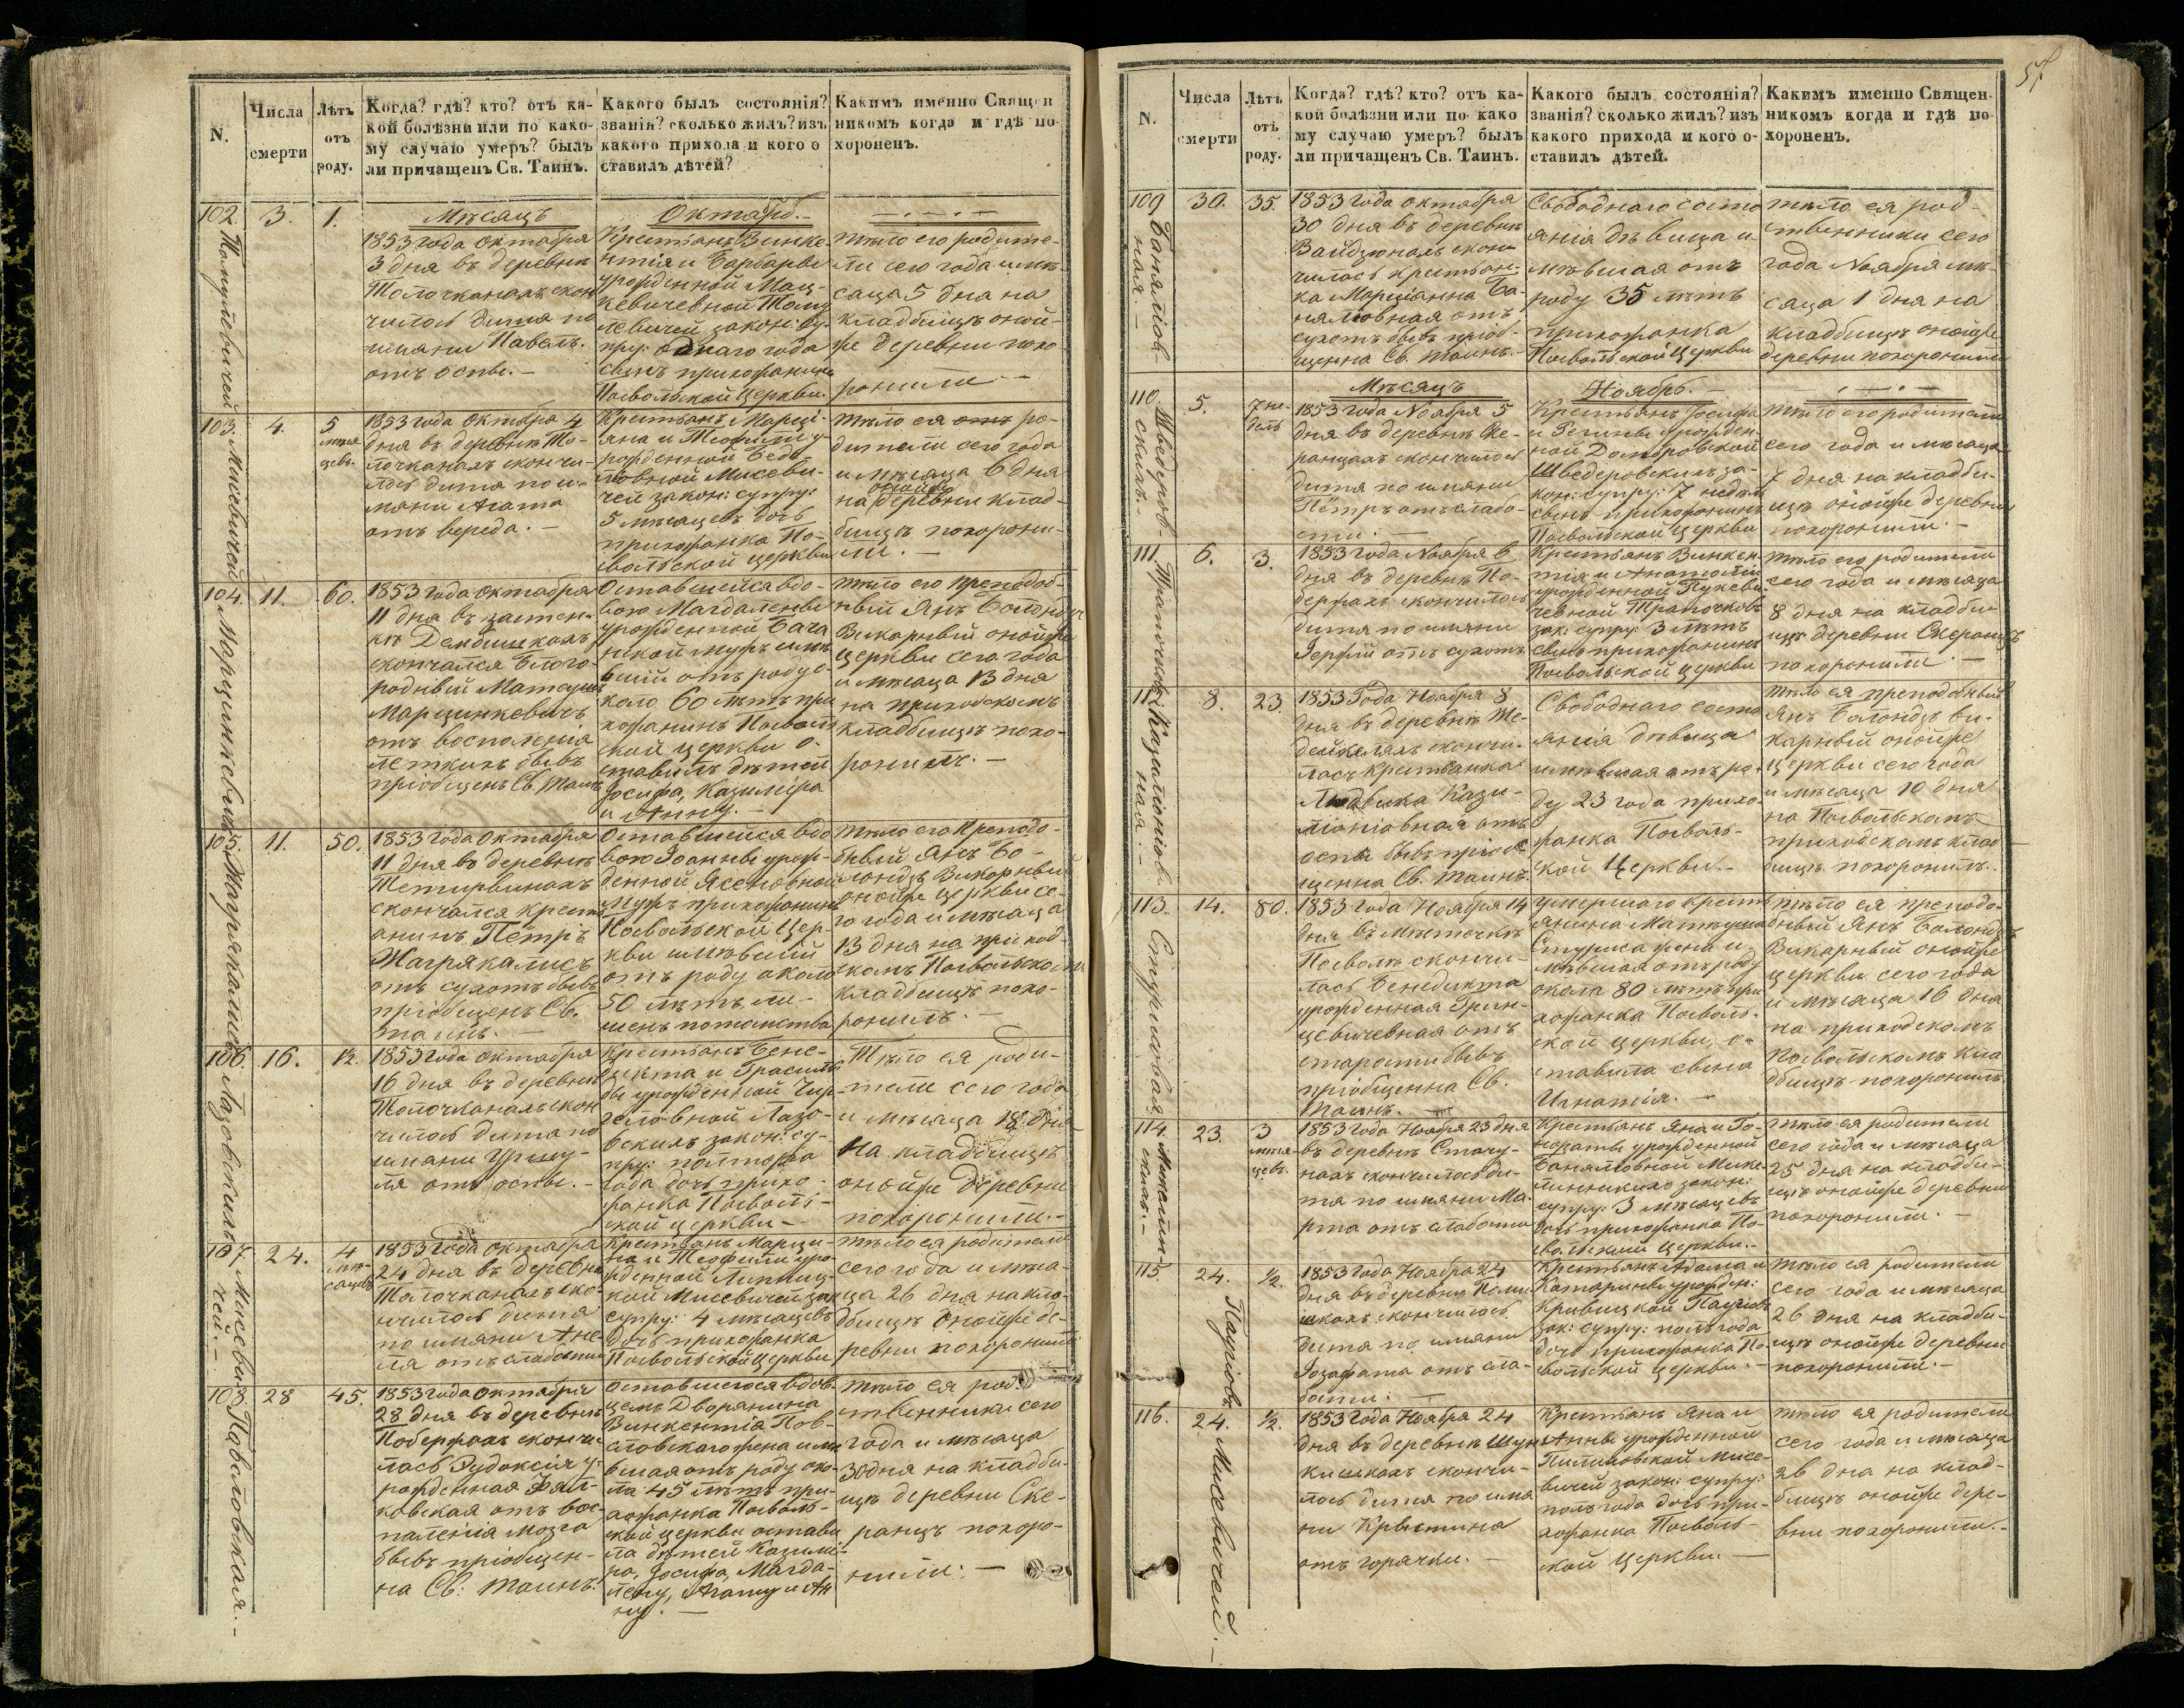 57
N.
Числа
смерти
Лѣтъ
отъ
роду.
Когда? гдѣ? кто? отъ ка-
кой болѣзни или по како-
му случаю умеръ? былъ
ли причащенъ Св. Таинъ.
Какого былъ состоянія?
званія? сколько жилъ? изъ
какого прихода и кого о
ставилъ дѣтей?
Какимъ именно Свящеп
никомъ когда и гдѣ по
хороненъ.
102.
3.
1.
Мѣсяцъ
1853 года Октября
3 дня въ деревнѣ
Толочканахъ скон
чилось дитя по
имяни Павелъ.
отъ оспы.-
Октябрь.-
Крестьянъ Винке-
нтія и Барбары
урожденной Мац-
кевичевной
закон: су-
пру: однаго года
сынъ прихожанинъ
Посвольской Церкви.
Тѣло его родите-
ли сего года и мѣ-
саца 5 дня на
кладбищѣ оной-
же деревни похо
ронили -
103.
Мисевичей
4.
5
мѣся
цевъ.
1853 года Октября 4
дня въ деревнѣ То-
лочканахъ скончи-
лось дитя по и-
мяни Агата
отъ вереда.-
Крестьянъ Марці-
яна и Теофили у-
рожденной
Мисеви-
чей закон: супру:
5 мѣсацевъ дочь
прихожанка По-
свольской церкви
Тѣло ея отъ ро-
дители сего года
и мѣсяца 6 дня
на онойже деревни клад-
бищѣ похорони-
ли.-
104.
Марцинкевичъ
11.
60.
1853 года Октября
11 дня въ застен-
кѣ
скончался Благо-
родный Матеушъ
Марцинкевичъ
отъ воспаленія
легкихъ бывъ
пріобщенъ Св. Таинъ
Оставшейся вдо-
вою Магдалены
урожденной
мужъ имѣ-
вшій отъ роду о-
коло 60 лѣтъ при
хожанинъ Посволь
ской церкви о-
ставилъ дѣтей
Іосифа, Казиміра
и Анну.-
Тѣло его преподоб-
ный Янъ
Викарный онойже
церкви сего года
и мѣсяца 13 дня
на приходскомъ
кладбищѣ похо-
ронилъ.-
105.
Жагрякалисъ
11.
50.
1853 года Октября
11 дня въ деревнѣ
скончался Крест
анинъ Пётръ
Жагрякалисъ
отъ сухотъ бывъ
пріобщенъ Св.
таинъ.-
Оставшейся вдо
вою Іоанны урож-
денной Ясеновной
Мужъ прихожанинъ
Посвольской Цер-
кви имѣвшій
отъ роду около
50 лѣтъ ли-
шенъ потомства
Тѣло его Преподо-
бный Янъ Бо-
лондзь Викарный
онойже церкви се-
го года и мѣсяца
13 дня на приход-
скомъ Посвольском
кладбищѣ похо-
ронилъ.-
106.
Лазовскихъ
16.
1½.
1853 года Октября
16 дня въ деревнѣ
Толочканахъ скон
чилось дитя по
имяни Уршу-
ля отъ оспы.-
Крестьянъ Бене-
дикта и
урожденной
Лазо-
вскихъ закон: су-
пру: полтора
года дочь прихо-
жанка Посволь-
ской церкви-
Тѣло ея роди-
тели сего года
и мѣсяца 18 дня
на кладбищѣ
онойже деревни
похоронили.-
107.
Мисеви-
чей.-
24.
4
мѣ-
сацевъ
1853 года Октября
24 дня въ деревнѣ
Толочканахъ ско-
нчилось дитя
по имяни Ане-
ля отъ слабости
Крестьянъ Марци-
на и Теофили уро-
жденной Липниц-
кой Мисевичей зак
супру: 4 мѣсацевъ
дочь прихожанка
Посвольской Церкви
Тѣло ея родители
сего года и мѣса-
ца 26 дня на кла-
дбищѣ онойже де-
ревни похоронили
108.
Павловская.-
28
45.
1853 года Октября
28 дня въ деревнѣ
Побержахъ скончи
лась Эудоксія у-
рожденная
отъ вос-
паленія мозга
бывъ пріобщен-
на Св: таинъ.
Оставшегося вдов-
цемъ Дворянина
Викентія Пав-
ловскаго жена имѣ
вшая отъ роду око-
ла 45 лѣтъ при-
хожанка Посволь-
ской церкви остави
ла дѣтей Казими-
ра, Іосифа, Магда-
лену, Агату и Ан
ну.-
Тѣло ея род-
ственники сего
года и мѣсяца
30 дня на кладби-
щѣ деревни Ске-
ранцъ похоро-
нили:-
N.
Числа
смерти
Лѣтъ
отъ
роду.
Когда? гдѣ? кто? отъ ка-
кой болѣзни или по како
му случаю умеръ? былъ
ли причащенъ Св. Таинъ.
Какого былъ состоянія?
званія? сколько жилъ? изъ
какого прихода и кого о-
ставилъ дѣтей.
Какимъ именно Священ-
никомъ когда и гдѣ по
хороненъ.
109.
30.
35.
1853 года Октября
30 дня въ деревнѣ
скон
чилась крестьян-
ка Марціанна Ба-
нялювная отъ
сухотъ бывъ пріоб-
щенна Св. таинъ.-
Свободнаго состо
янія дѣвица и-
мѣвшая отъ
роду 35 лѣтъ
прихожанка
Посвольской Церкви
Тѣло ея род-
ственники сего
года Ноября мѣ-
саца 1 дня на
кладбищѣ онойже
деревни похоронили
110.
Шведеров-
скихъ.-
5.
7 не-
дель
Мѣсяцъ
1853 года Ноября 5
дня въ деревнѣ Ске-
ранцахъ скончилось
дитя по имяни
Пётръ отъ слабо-
сти.-
Ноябрь.-
Крестьянъ Іосифа
и Регины урожден-
ной Домбровской
Шведеровскихъ за-
кон: супру: 7 недель
сынъ прихожанинъ
Посвольской Церкви
Тѣло его родители
сего года и мѣсяца
7 дня на кладби-
щѣ онойже деревни
похоронили.-
111.
6.
3.
1853 года Ноября 6
дня въ деревнѣ По-
бержахъ скончилось
дитя по имяни
отъ сухотъ
Крестьянъ Винкен-
тія и
урожденной
зак: супру: 3 лѣтъ
сынъ прихожанинъ
Посвольской Церкви
Тѣло его родители
сего года и мѣсяца
8 дня на кладби-
щѣ деревни Скеранцъ
похоронили.-
112.
8.
23.
1853 Года Ноября 8
дня въ деревнѣ
скончи-
лась Крестьянка
Людвика Кази-
ліоніовная отъ
оспы бывъ пріоб-
щенна Св. таинъ.
Свободнаго состо
янія дѣвица
имѣвшая отъ ро-
ду 23 года прихо-
жанка Посволь-
ской Церкви.-
Тѣло ея преподобный
Янъ Болондзь ви-
карный онойже
церкви сего года
и мѣсяца 10 дня
на Посвольскомъ
приходскомъ клад
бищѣ похоронилъ.
113.
Стурисовая
14.
80.
1853 года Ноября 14
дня въ мѣстечкѣ
Посволѣ скончи-
лась Бенедикта
урожденная Грин-
цевичевная отъ
старости бывъ
пріобщенна Св.
Таинъ.-
Умершаго Крест
янина Матеуша
Стуриса жена и-
мѣвшая отъ роду
окола 80 лѣтъ при
хожанка Посволь-
ской церкви, о-
ставила сына
Игнатія.-
Тѣло ея преподо-
бный Янъ Болондзь
Викарный онойже
церкви сего года
и мѣсяца 16 дня
на приходскомъ
Посвольскомъ кла
дбищѣ похоронилъ.
114.
23.
3
мѣся-
цевъ.
1853 года Ноября 23 дня
въ деревнѣ
скончилось ди-
тя по имяни Ма-
рта отъ слабости
Крестьянъ Яна и
урожденной
Банялювной
закон:
супру: 3 мѣсацевъ
дочь прихожанка По-
свольской Церкви.-
Тѣло ея родители
сего года и мѣсяца
25 дня на кладби-
щѣ онойже деревни
похоронили.-
115.
24.
½.
1853 года Ноября 24
дня въ деревнѣ
скончилось
дитя по имяни
Іозафата отъ сла-
бости:-
Крестьянъ Адама и
Катарины урожден:
Кривицкой
зак: супру: полъ года
дочь прихожанка По-
свольской церкви.-
Тѣло ея родители
сего года и мѣсяца
26 дня на кладби-
щѣ онойже деревни
похоронили.-
116.
Мисевичей.-
24.
½.
1853 года Ноября 24
дня въ деревнѣ Шун
кишкахъ скончи-
лось дитя по имя
ни Крыстина
отъ горячки.-
Крестьянъ Яна и
Анны урожденной
Мисе-
вичей закон: супру:
полъ года дочь при-
хожанка Посволь-
ской Церкви.-
Тѣло ея родители
сего года и мѣсяца
26 дня на клад-
бищѣ онойже дере-
вни похоронили.-